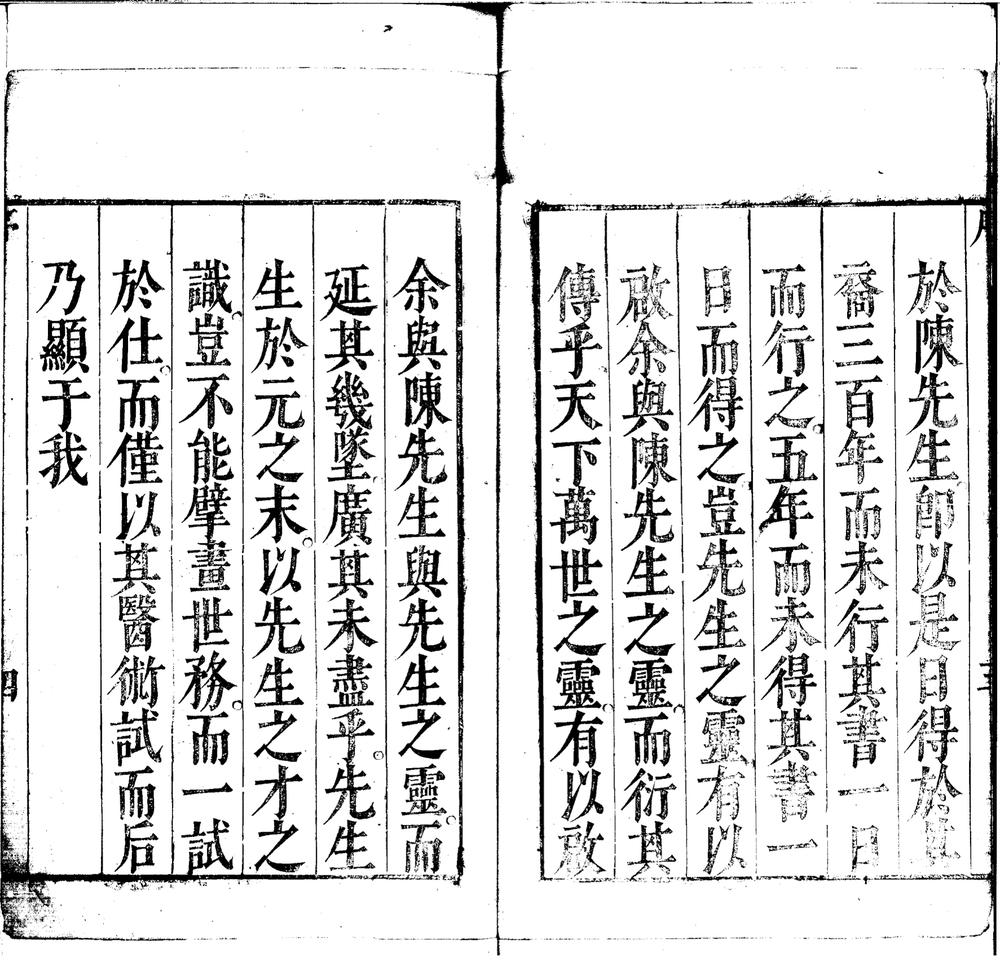 於陳先生卽以是日得於其
裔三百年而未行其書一日
而行之五年而未得其書一
日而得之豈先生之靈有以
啟余與陳先生之靈而衍其
傳乎天下萬世之靈有以啟
余與陳先生與先生之靈而
延其幾墜廣其未盡乎先生
生於元之末以先生之才之
識豈不能擘畫世務而一試
於仕而僅以其醫術試而后
乃顯于我
四